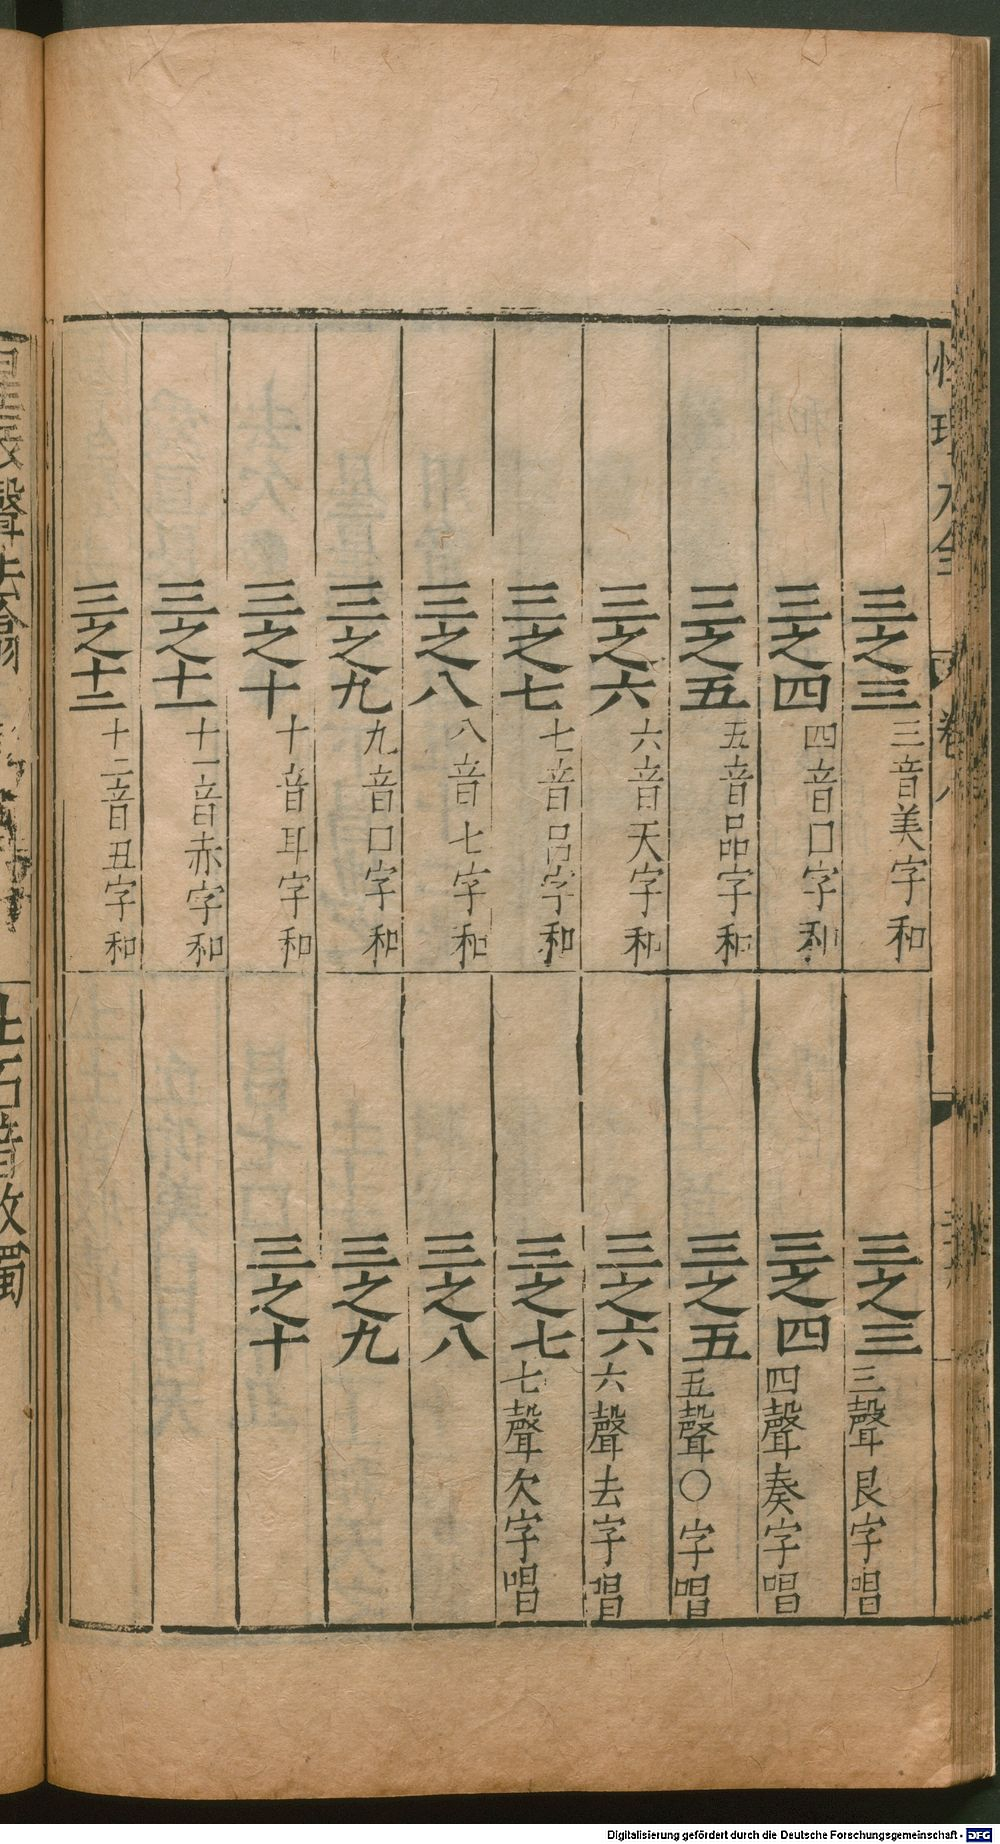 性理大全 卷八
三之三 三音美字和
三之四 四音口字和
三之五 五音品字和
三之六 六音天字和
三之七 七音吕字和
三之八 八音七字和
三之九 九音口字和
三之十 十音耳字和
三之十一 十一音赤字和
三之十二 十二音丑字和
三之三 三聲艮字唱
三之四 四聲奏字唱
三之五 五聲〇字唱
三之六 六聲去字唱
三之七 七聲欠字唱
三之八
三之九
三之十
聲去翕
石音收濁
Digitalisierung gefördert durch die Deutsche Forschungsgemeinschaft - DFG